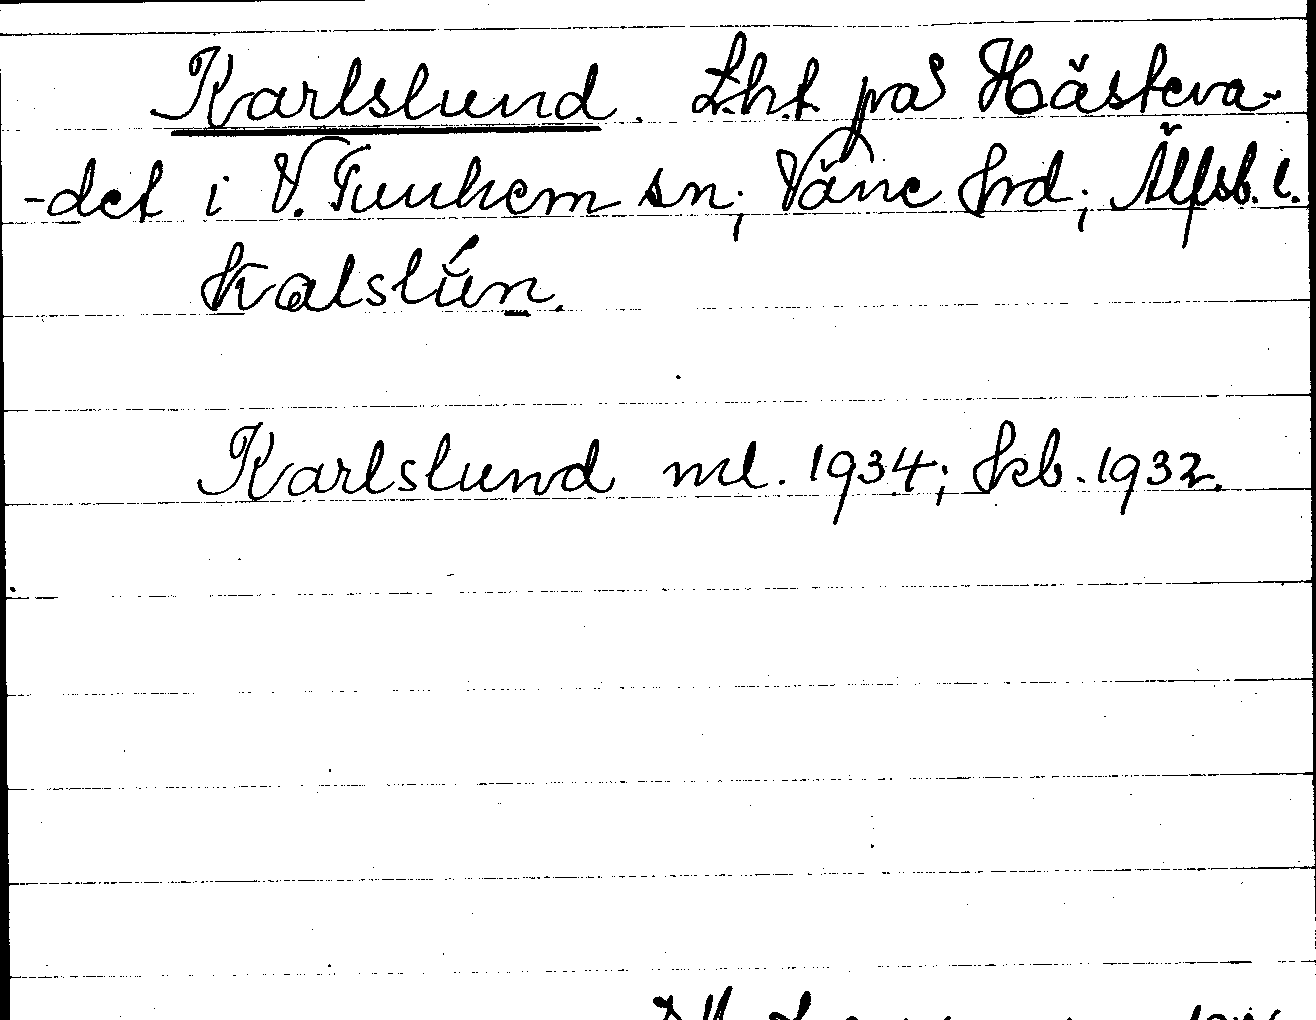 Karlslund. Lht. på Hästeva-
-det i V. Tunhem sn; Väne hrd; Älfsb. l.
kalslún.
Karlslund ml. 1934; kb. 1932.